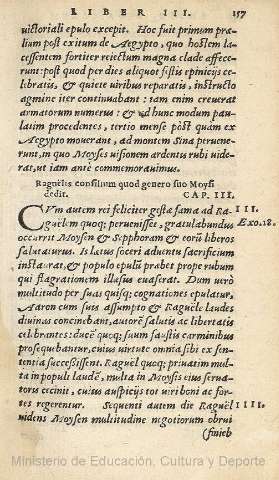 LIBER III. 157
uictoriali epulo excepit. Hoc fuit primum præ-
lium post exitum de Aegypto, quo hostem la-
cessentem fortiter reiectum magna clade affece-
runt: post quod per dies aliquot festis epinicijs ce-
lebratis, & quiete uiribus reparatis, instructo
agmine iter continuabant: iam enim creuerat
armatorum numerus: & adhunc modum pau-
latim procedentes, tertio mense pòst quàm ex
Aegypto mouerant, ad montem Sina peruene-
runt, in quo Moyses uisionem ardentis rubi uide-
rat, ut iam antè commemorauimus.
Raguelis consilium quod genero suo Moysi
dedit. CAP. III.
CVm autem rei feliciter gestæ fama ad Ra- III.
guelem quoq; peruenisset, gratulabundus Exo.18.
occurrit Moysen & Sepphoram & eorũ liberos
salutaturus. Is lætus soceri aduentu sacrificium
instaurat, & populo epulũ præbet prope rubum
qui flagrationem illæsus euaserat. Dum uerò
multitudo per suas quisq; cognationes epulatur,
Aaron cum suis assumpto & Raguële laudes
diuinas concinebant, autorẽ salutis ac libertatis
celebrantes: ducẽ quoq; suum faustis carminibus
prosequebantur, cuius uirtute omnia sibi ex sen-
tentia successissent. Raguel quoq; priuatim mul-
ta in populi laudẽ, multa in Moysis eius serua-
toris cecinit, cuius auspicijs tot uiriboni ac for-
tes regerentur. Sequenti autem die Raguel IIII.
uidens Moysen multitudine negotiorum obrui
(sineb
Ministerio de Educación, Cultura y Deporte